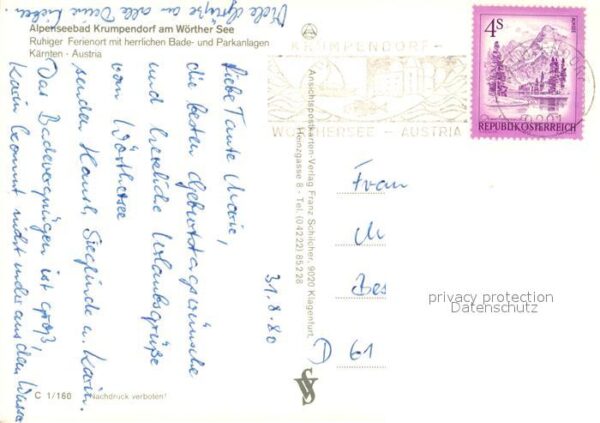 Viele Grüße an alle Deine Lieben
Alpenseebad Krumpendorf am Wörther See
Ruhiger Ferienort mit herrlichen Bade- und Parkanlagen
Kärnten - Austria
Liebe Tante Marie,
die besten Geburtstagswünsche
und herzliche Urlaubsgrüße
vom Wörthersee
senden Hansl, Sieglinde u. Karin.
Das Badevergnügen ist groß,
Karin kommt nicht mehr aus dem Wasser
31.8.80
C 1/160
Nachdruck verboten!
Ansichtspostkarten-Verlag Franz Schilcher, 9020 Klagenfurt
Heinzgasse 8 - Tel. (0 42 22) 85 2 28
KRUMPENDORF -
WÖRTHERSEE - AUSTRIA
4S
REPUBLIK ÖSTERREICH
Frau
M
Bes
D 61
privacy protection
Datenschutz